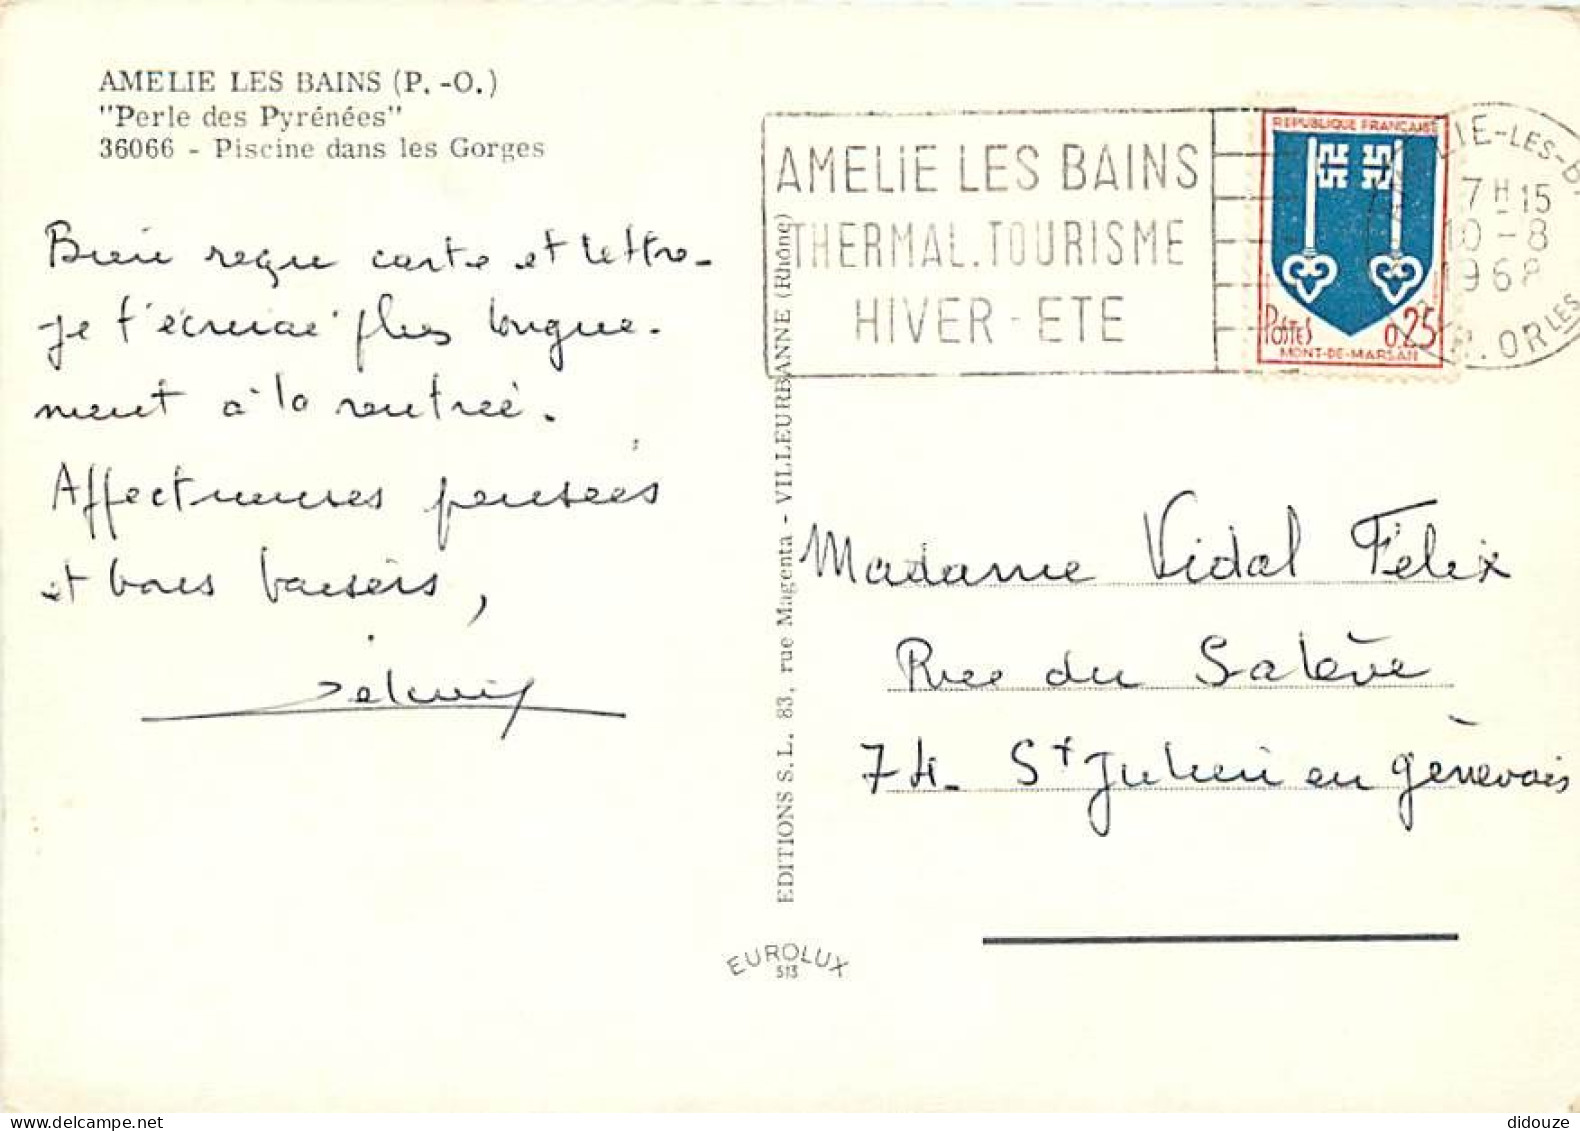 AMELIE LES BAINS (P. -O.)
"Perle des Pyrénées"
36066 - Piscine dans les Gorges
Bien reçu carte et lettre -
je t'écrirai plus longue-
ment à la rentrée.
Affectueuses pensées
et bons baisers,
AMELIE LES BAINS
THERMAL. TOURISME
HIVER - ETE
REPUBLIQUE FRANÇAISE
POSTES 0,25
MONT-DE-MARSAN
LIE-LES-B
7H-15
10-8
1968
OR LES
EDITIONS S. L. 83, rue Magenta - VILLEURBANNE (Rhône)
Madame Vidal Félix
Rue du Salève
74. St Julien en génevois
EUROLUX
513
didouze